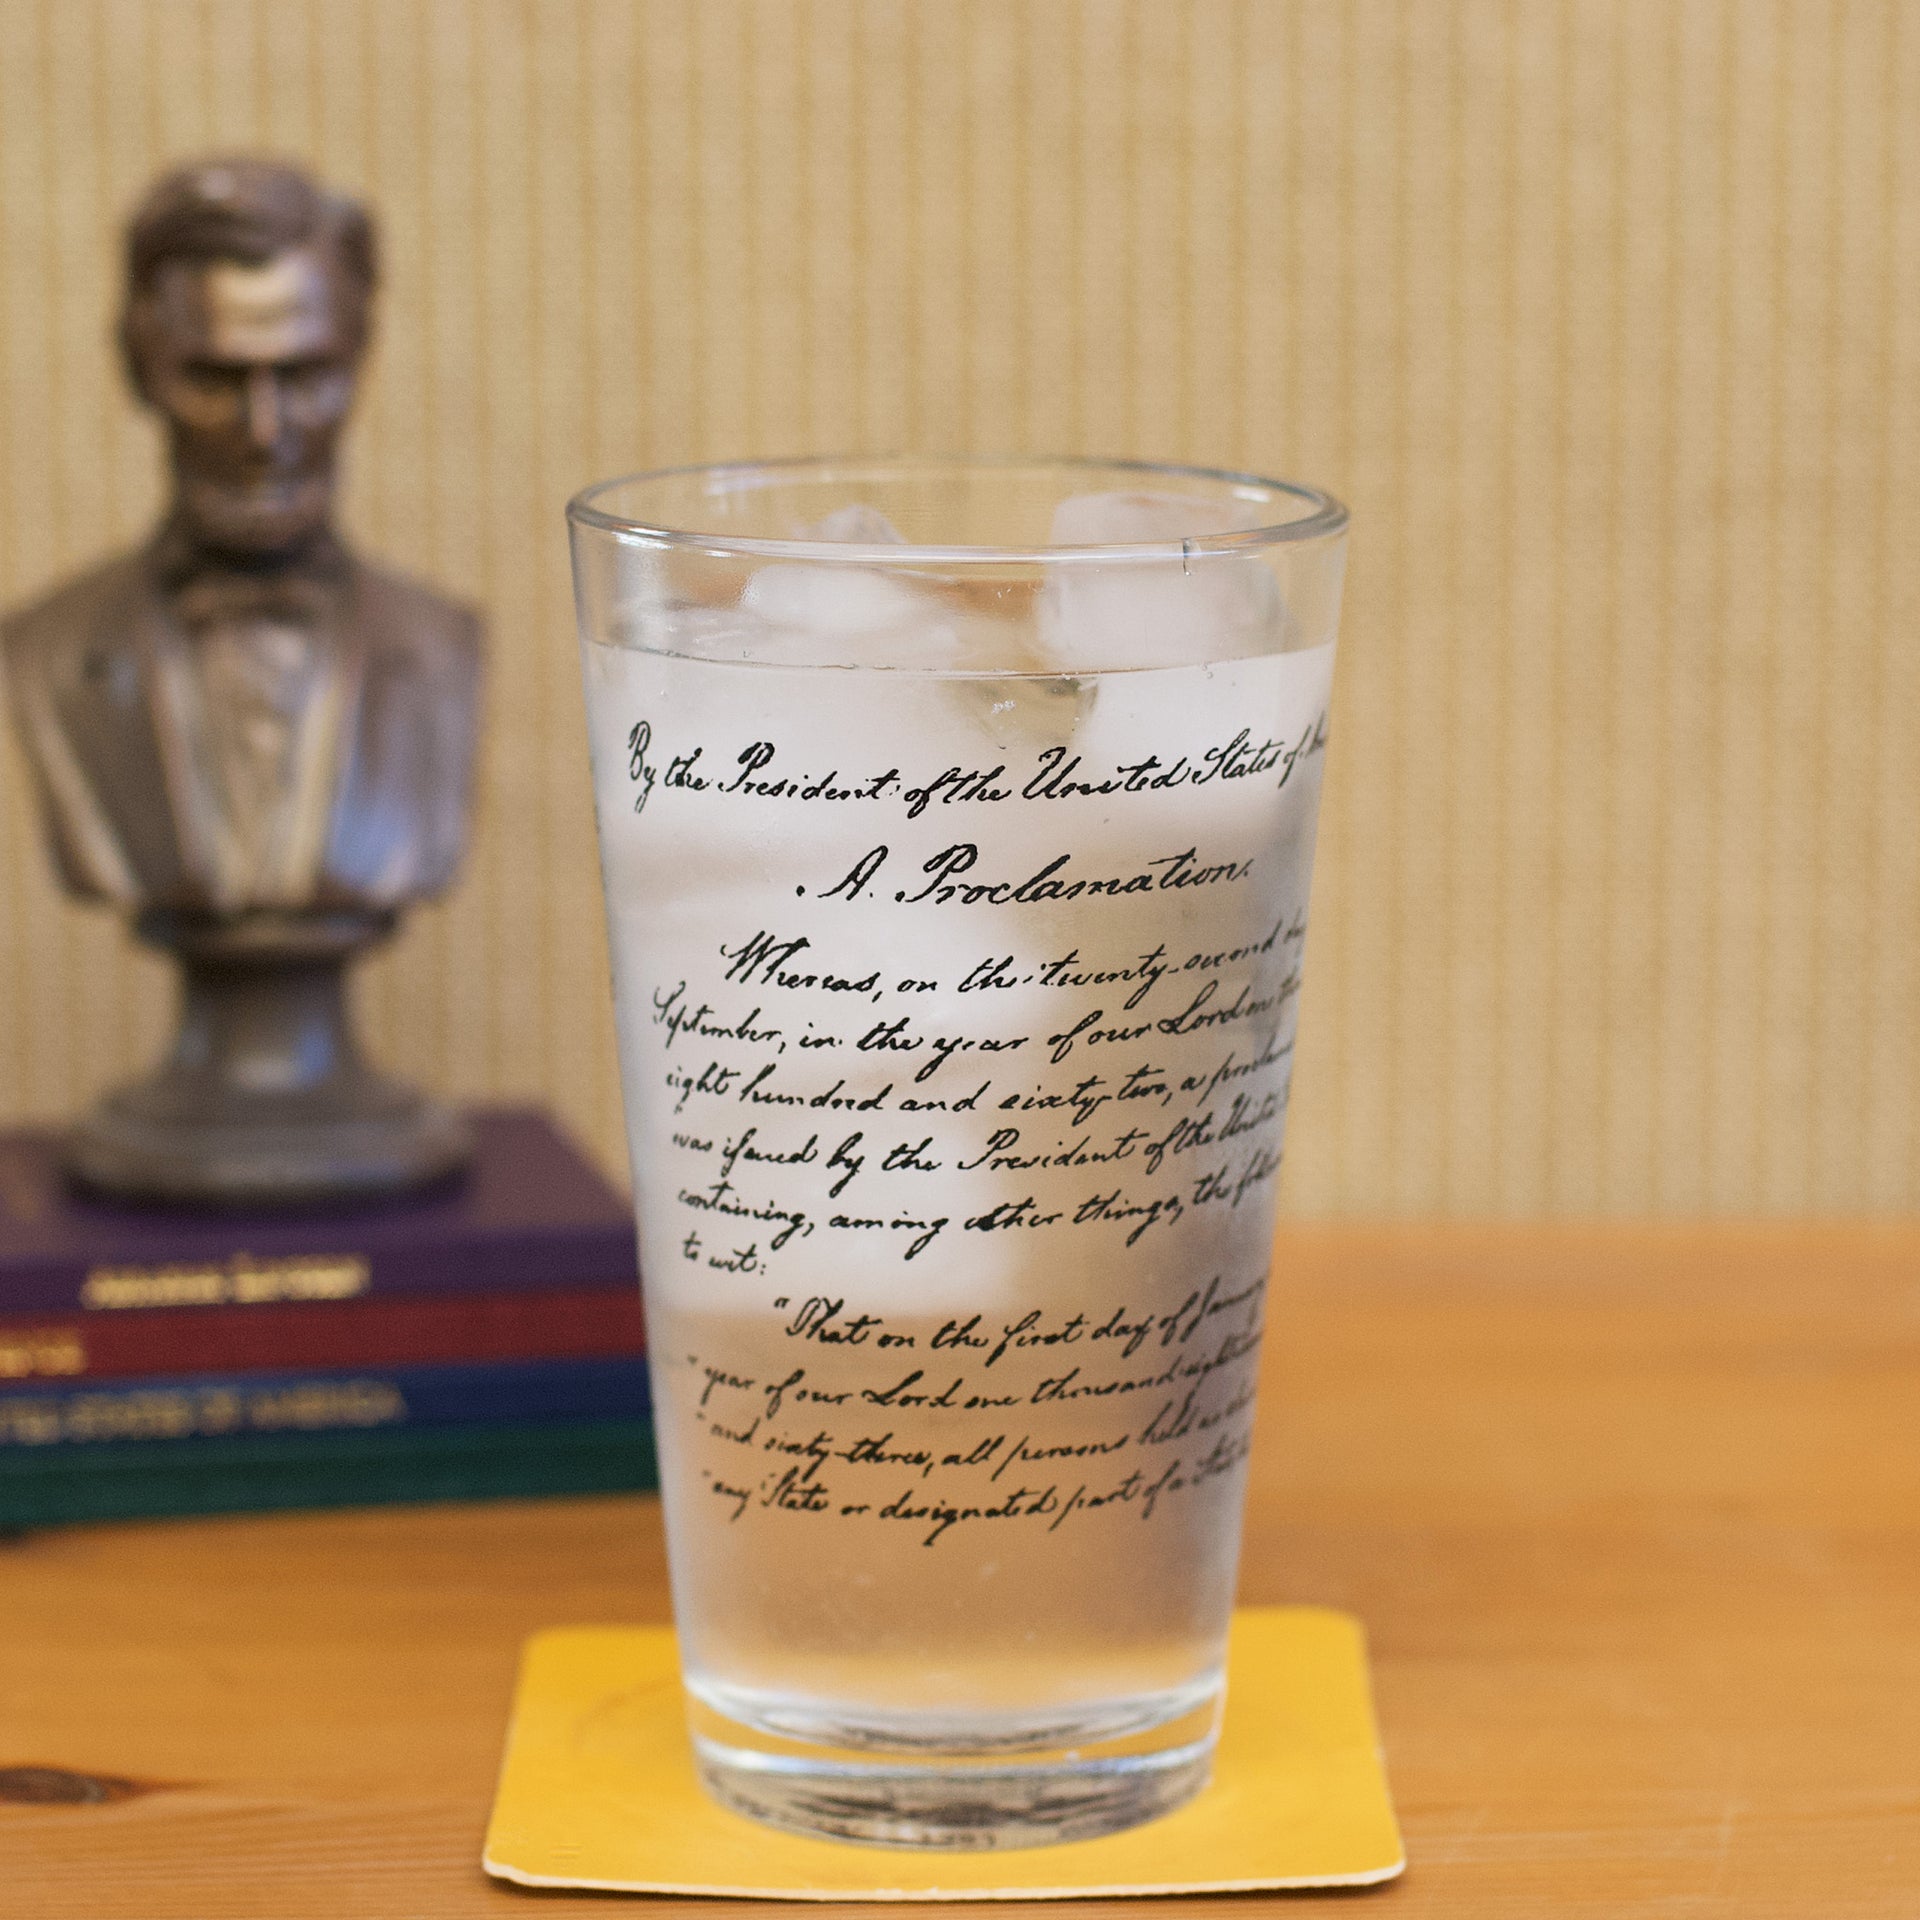 By the President of the United States of
A. Proclamation.
Whereas, on the twenty-second day
September, in the year of our Lord one
eight hundred and sixty-two, a
was issued by the President of the United
containing, among other things, the
to wit:
"That on the first day of January
" year of our Lord one thousand eight
" and sixty-three, all persons held as
" any State or designated part of a State
STATES OF AMERICA